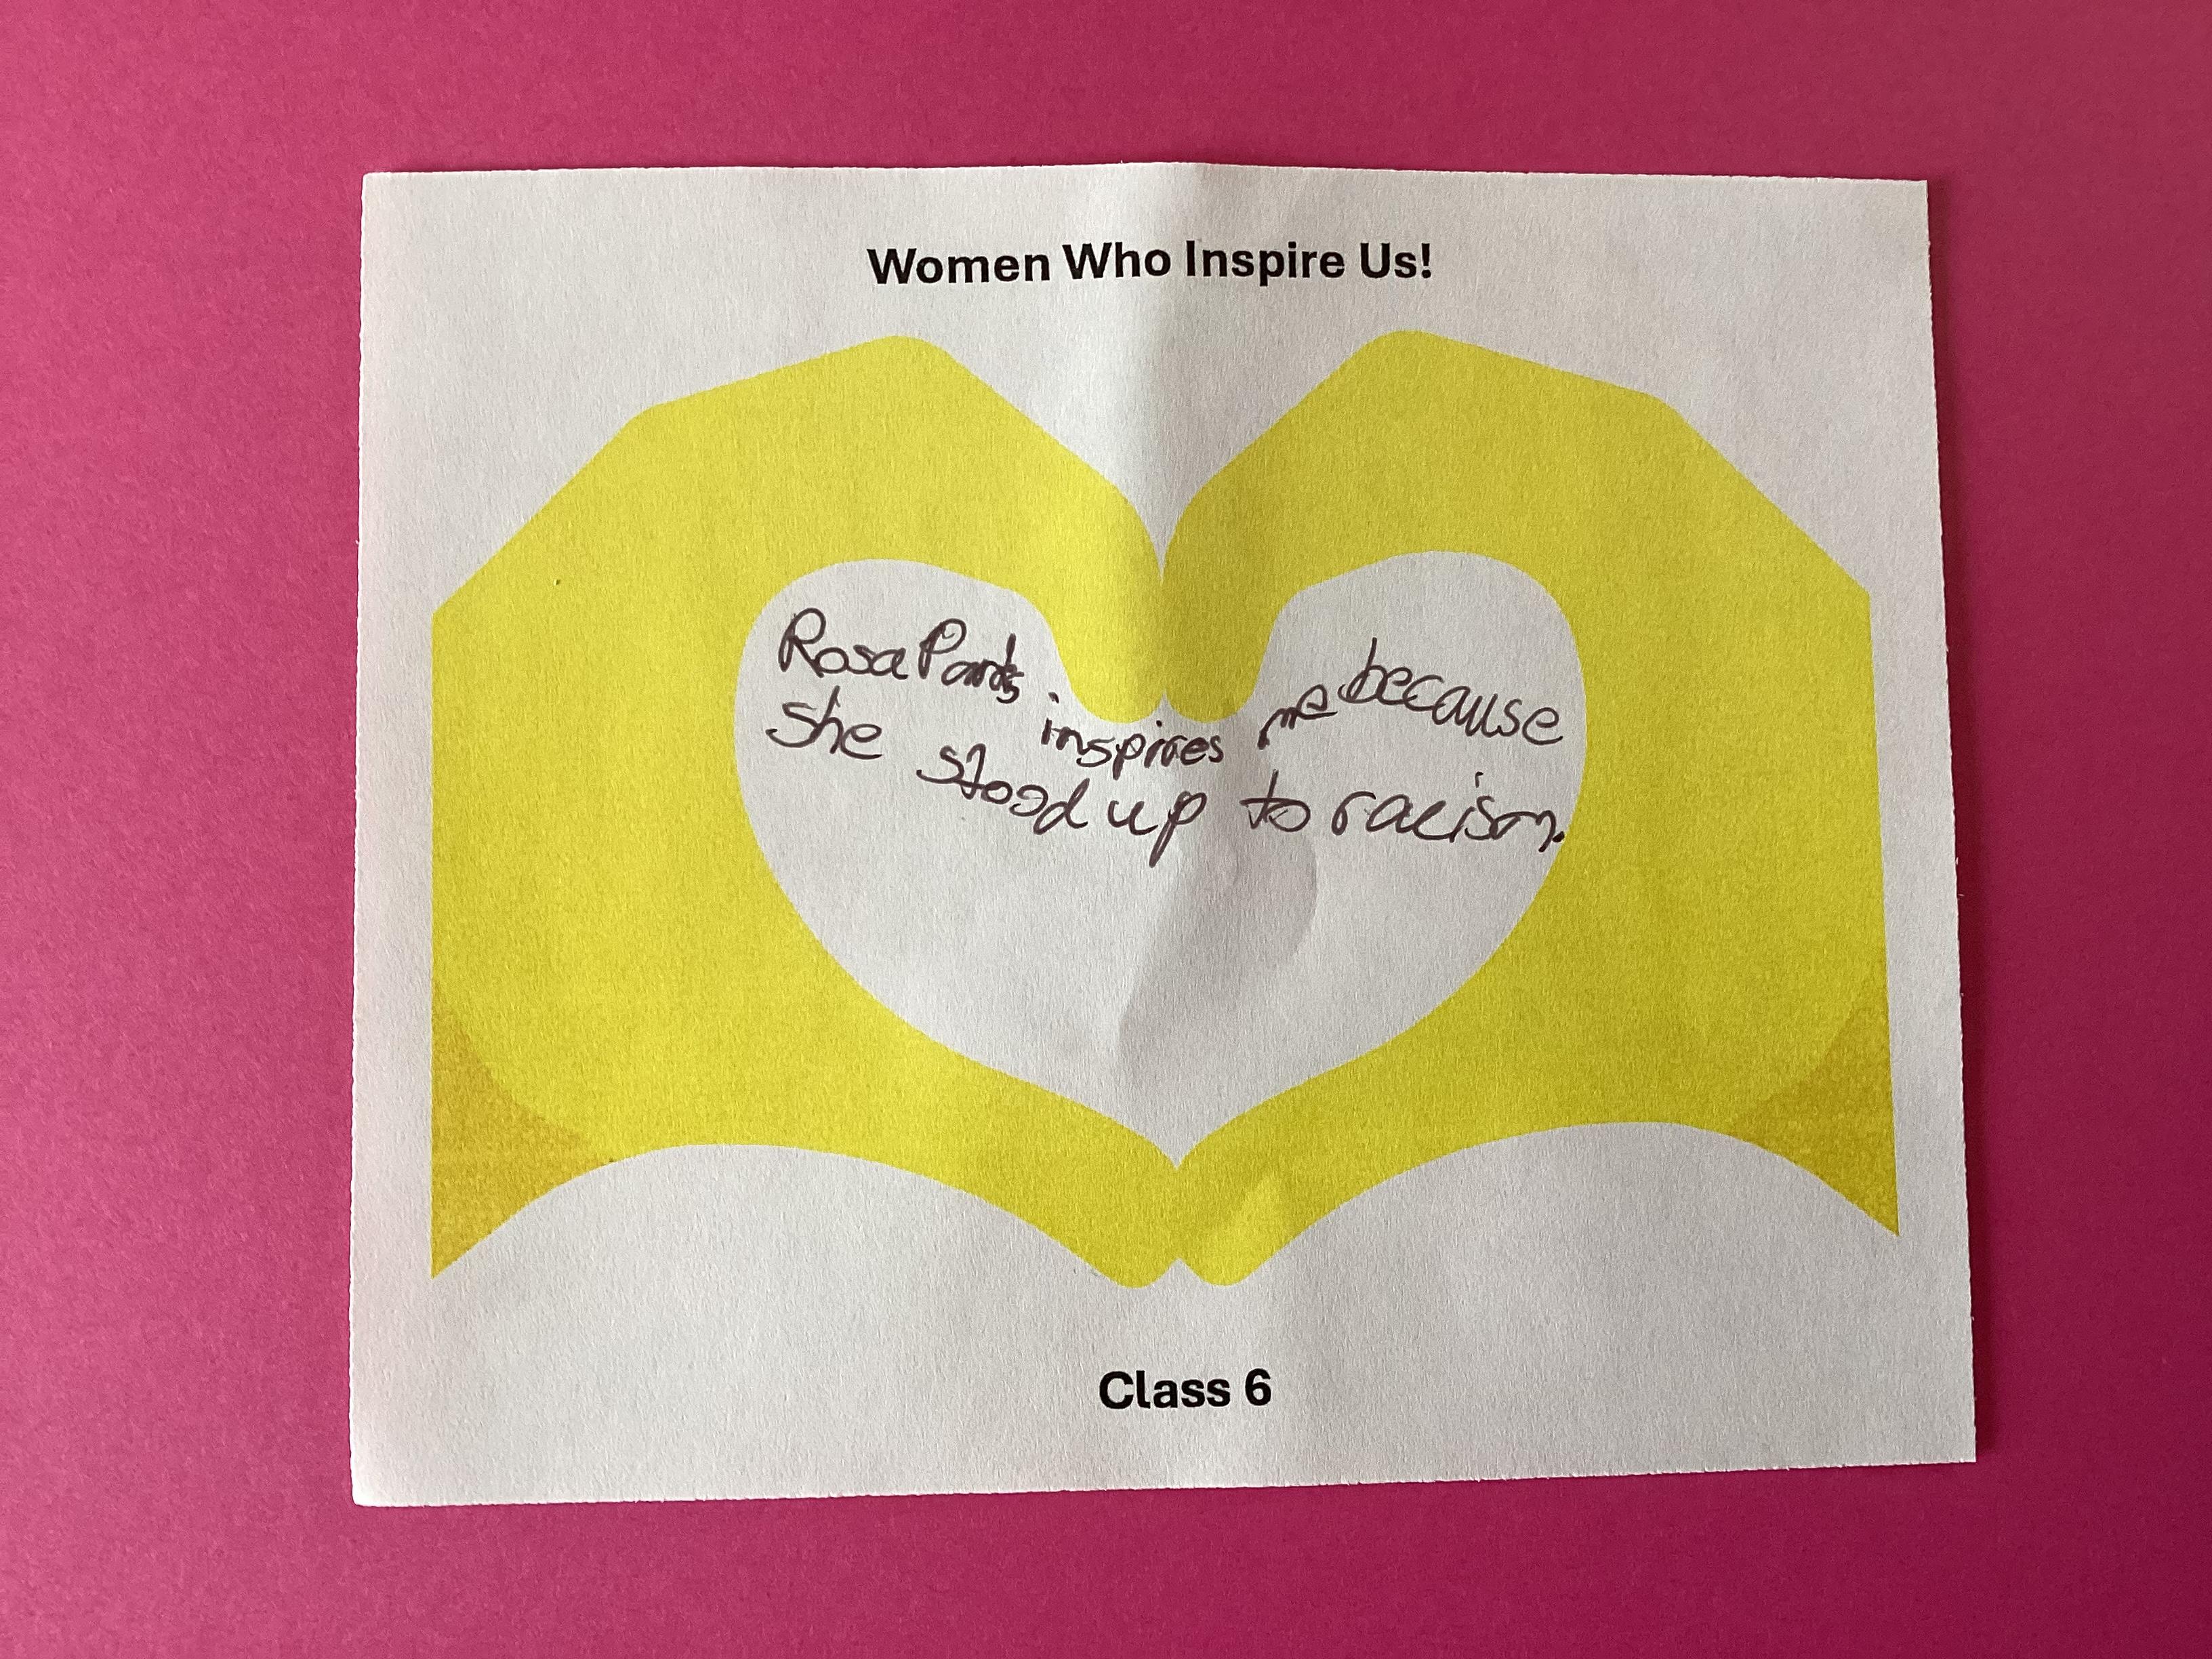 Women Who Inspire Us!
Rosa Parks inspires me because
she stood up to racism.
Class 6